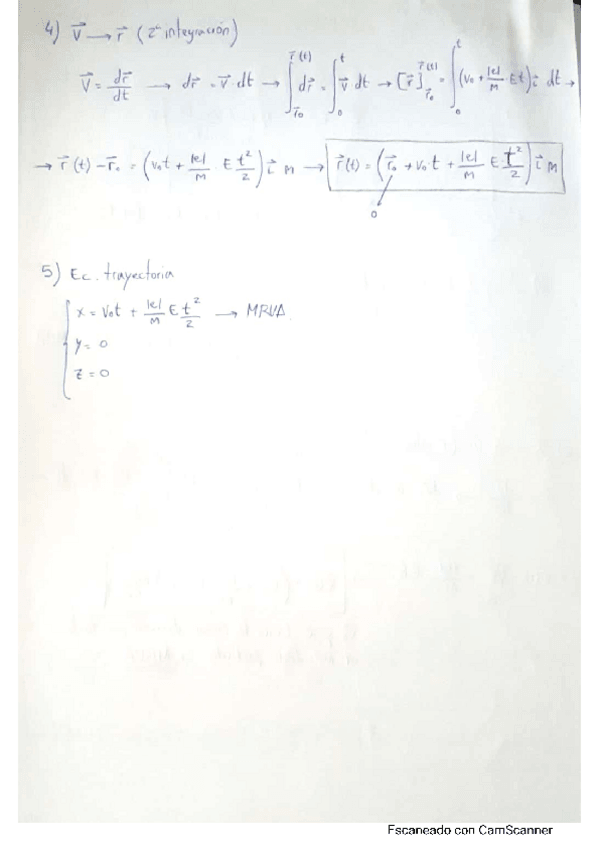 4) v⃗ → r⃗ (2ª integración)
v⃗ = dr⃗/dt → dr⃗ = v⃗·dt → ∫_{r⃗₀}^{r⃗(t)} dr⃗ = ∫₀ᵗ v⃗ dt → [r⃗]_{r⃗₀}^{r⃗(t)} = ∫₀ᵗ (v₀ + |e|/m · E t) i⃗ dt →
→ r⃗(t) − r⃗₀ = (v₀t + |e|/m E t²/2) i⃗ m → r⃗(t) = (r⃗₀ + v₀t + |e|/m E t²/2) i⃗ m
0
5) Ec. trayectoria
x = v₀t + |e|/m E t²/2 → MRUA.
y = 0
z = 0
Escaneado con CamScanner